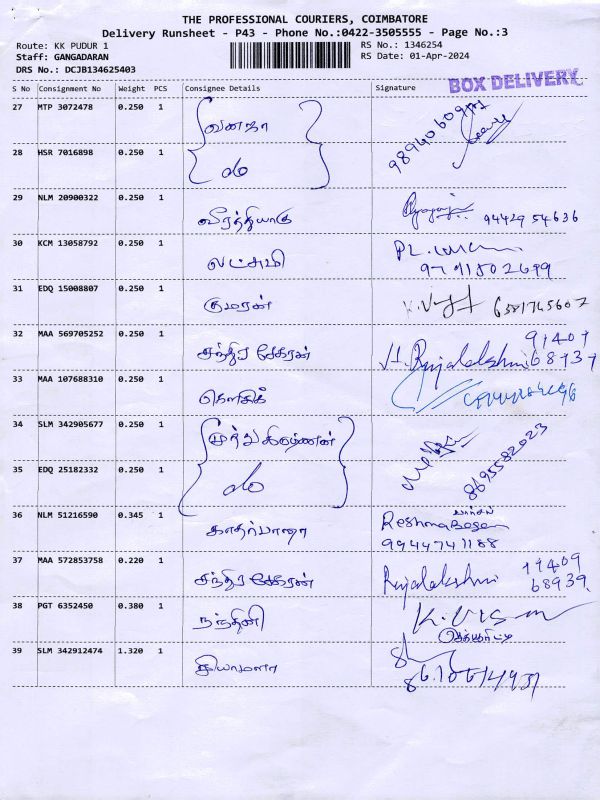 THE PROFESSIONAL COURIERS, COIMBATORE
Delivery Runsheet - P43 - Phone No.:0422-3505555 - Page No.:3
Route: KK PUDUR 1
Staff: GANGADARAN
DRS No.: DCJB134625403
RS No.: 1346254
RS Date: 01-Apr-2024
BOX DELIVERY
S No Consignment No Weight PCS Consignee Details Signature
27 MTP 3072478 0.250 1 வனஜா
28 HSR 7016898 0.250 1
29 NLM 20900322 0.250 1 94429 54636
30 KCM 13058792 0.250 1 லட்சுமி
31 EDQ 15008807 0.250 1 குமரன்
32 MAA 569705252 0.250 1 சந்திர சேகரன் Rajalakshmi
33 MAA 107688310 0.250 1 கௌசிக்
34 SLM 342905677 0.250 1 முத்துகிருஷ்ணன்
35 EDQ 25182332 0.250 1 8695582023
36 NLM 51216590 0.345 1 காதர்பாஷா Reshma Began
9944741188
37 MAA 572853758 0.220 1 சந்திர சேகரன் Rajalakshmi
68939
38 PGT 6352450 0.380 1 நந்தினி
39 SLM 342912474 1.320 1 சியாமளா